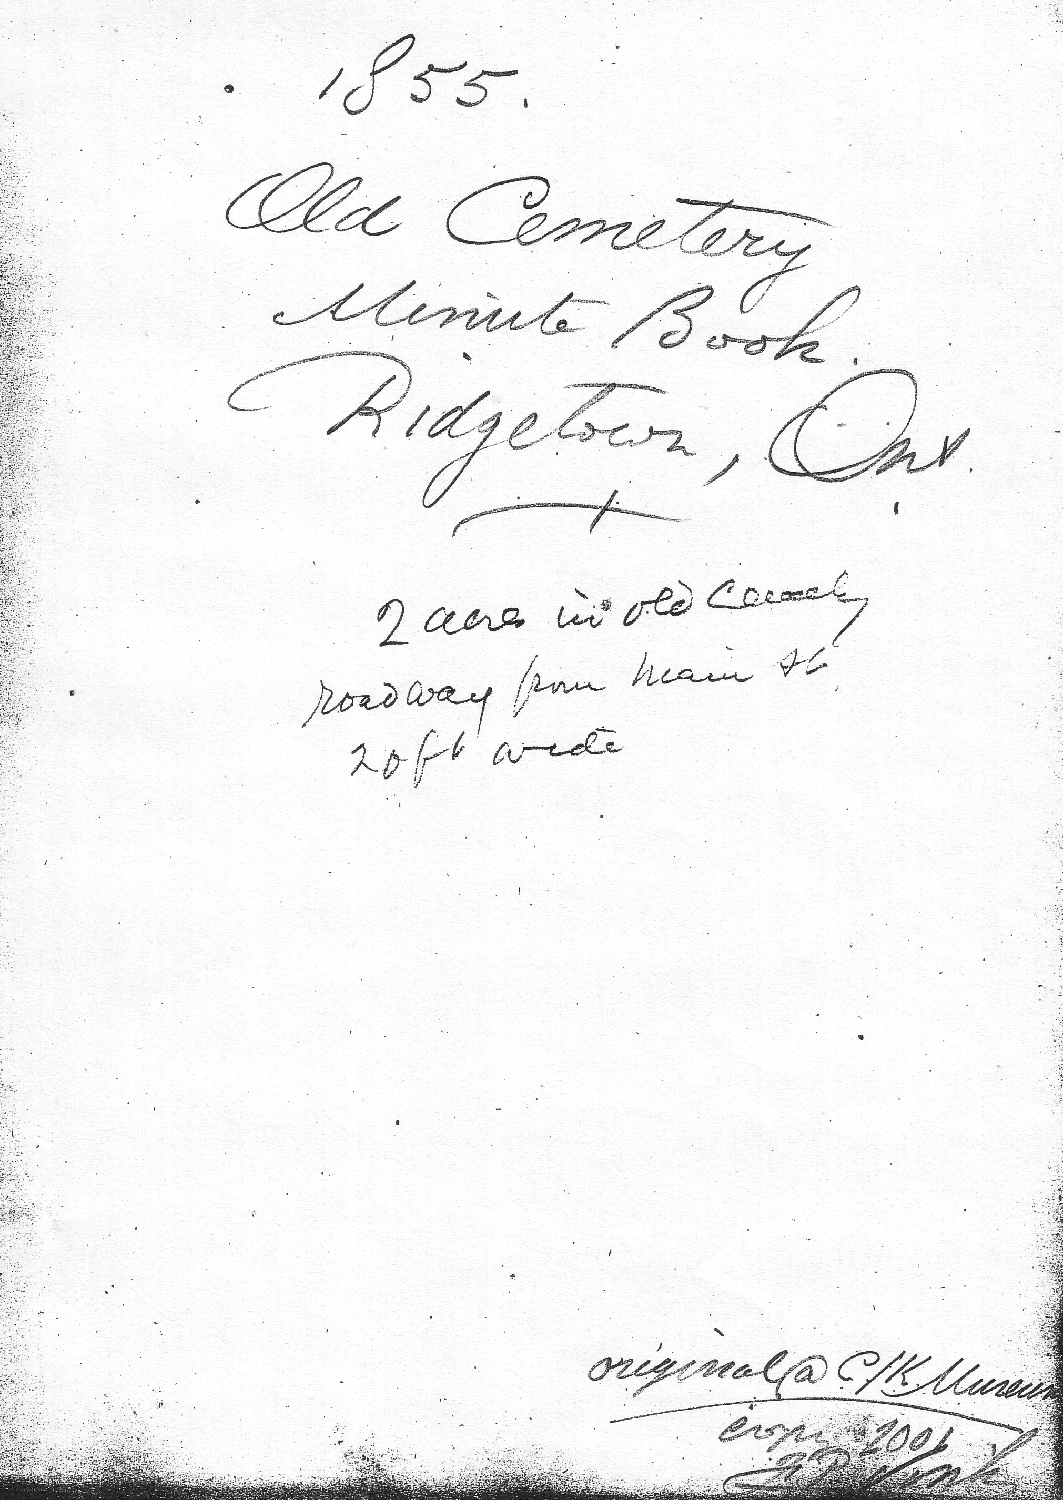 1855.
Old Cemetery
Minute Book.
Ridgetown, Ont.
2 acres in old Cemetery
roadway from Main St
20 ft wide
original @ C/K Museum
2001